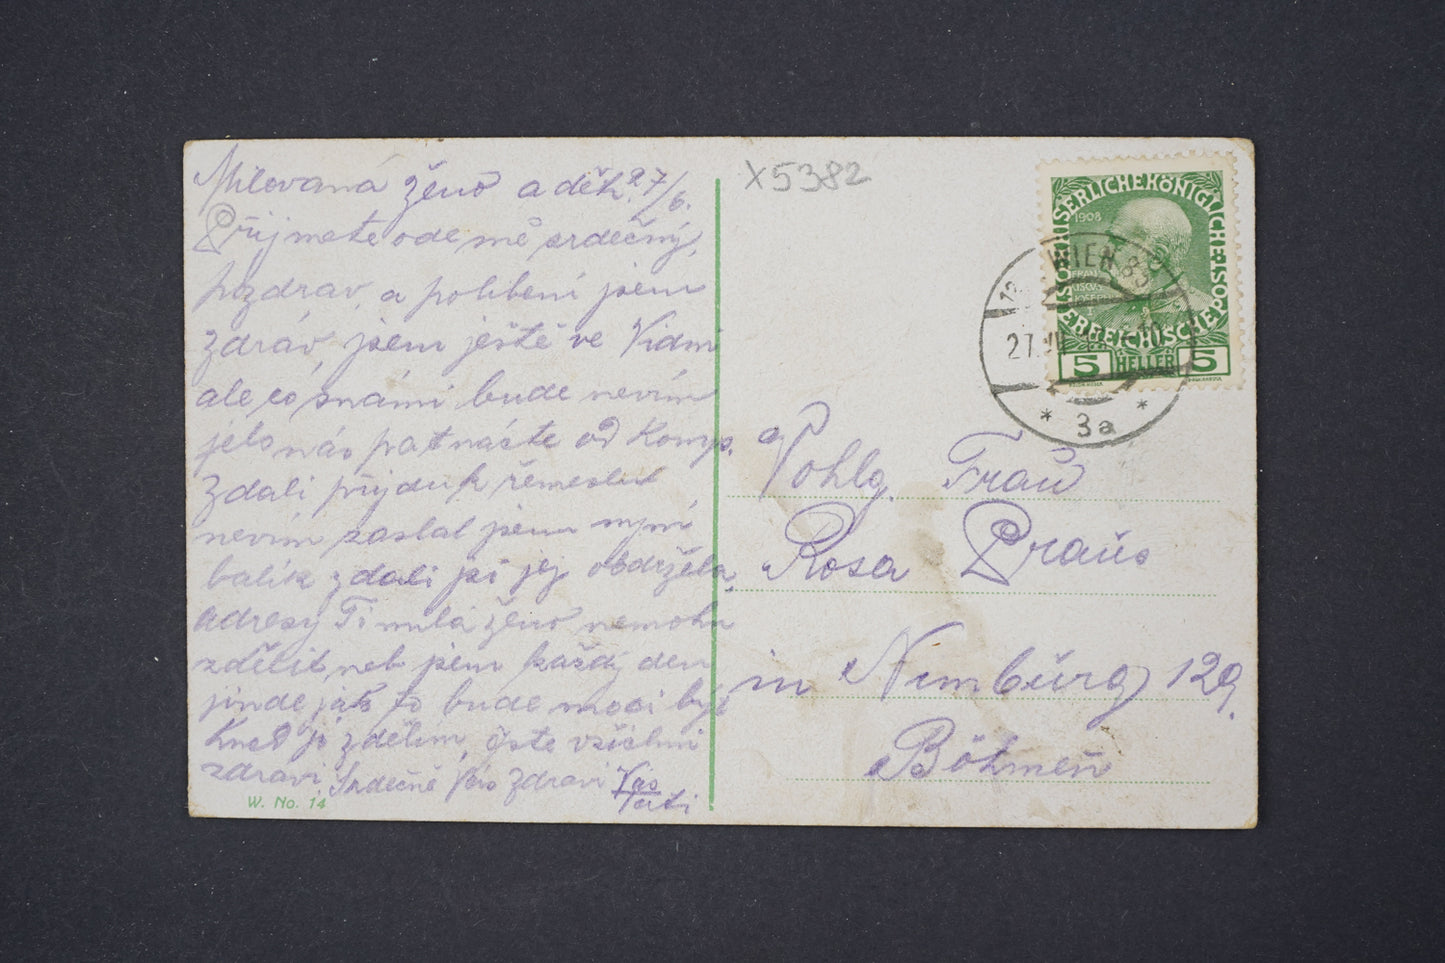 X5382
Milovaná ženo a děti 27/6.
Přijmete ode mě srdečný
pozdrav a políbení jsem
zdráv, jsem ještě ve Vídni
ale co snámi bude nevím
jelo nás patnácte od Komp.
zdali přijdu k řemeslu
nevím zaslal jsem nyní
balík zdali jsi jej obdržela,
adresy Ti milá ženo nemohu
zdělit neb jsem každý den
jinde jak to bude moci být
hned ji zdělím, jste všichni
zdravi. Srdečně Vás zdraví Váš
W. No. 14
KAISERLICHE KÖNIGLICHE ÖSTERREICHISCHE
1908
5 HELLER 5
WIEN 83
27.VII
* 3a *
Wohlg. Frau
Rosa Praus
in Nimburg 129.
Böhmen